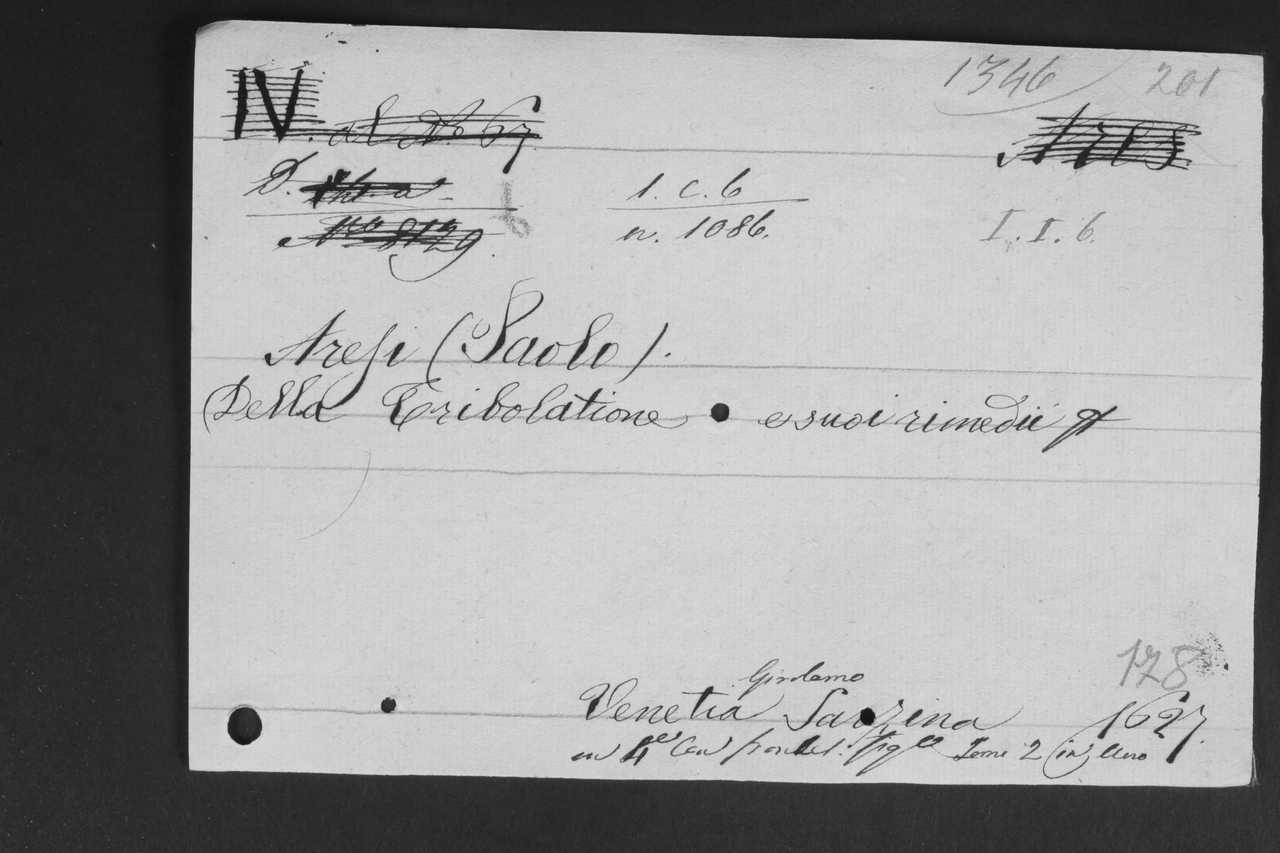 1346 201
IV. al No 67
D.
No 8129.
1. c. 6
n. 1086.
I. I. 6.
Aresi (Paolo).
Della Tribolatione e suoi rimedii
178
Girolamo
Venetia Sarzina 1627.
in 4° Con frontesp. fig° Tomi 2 in uno